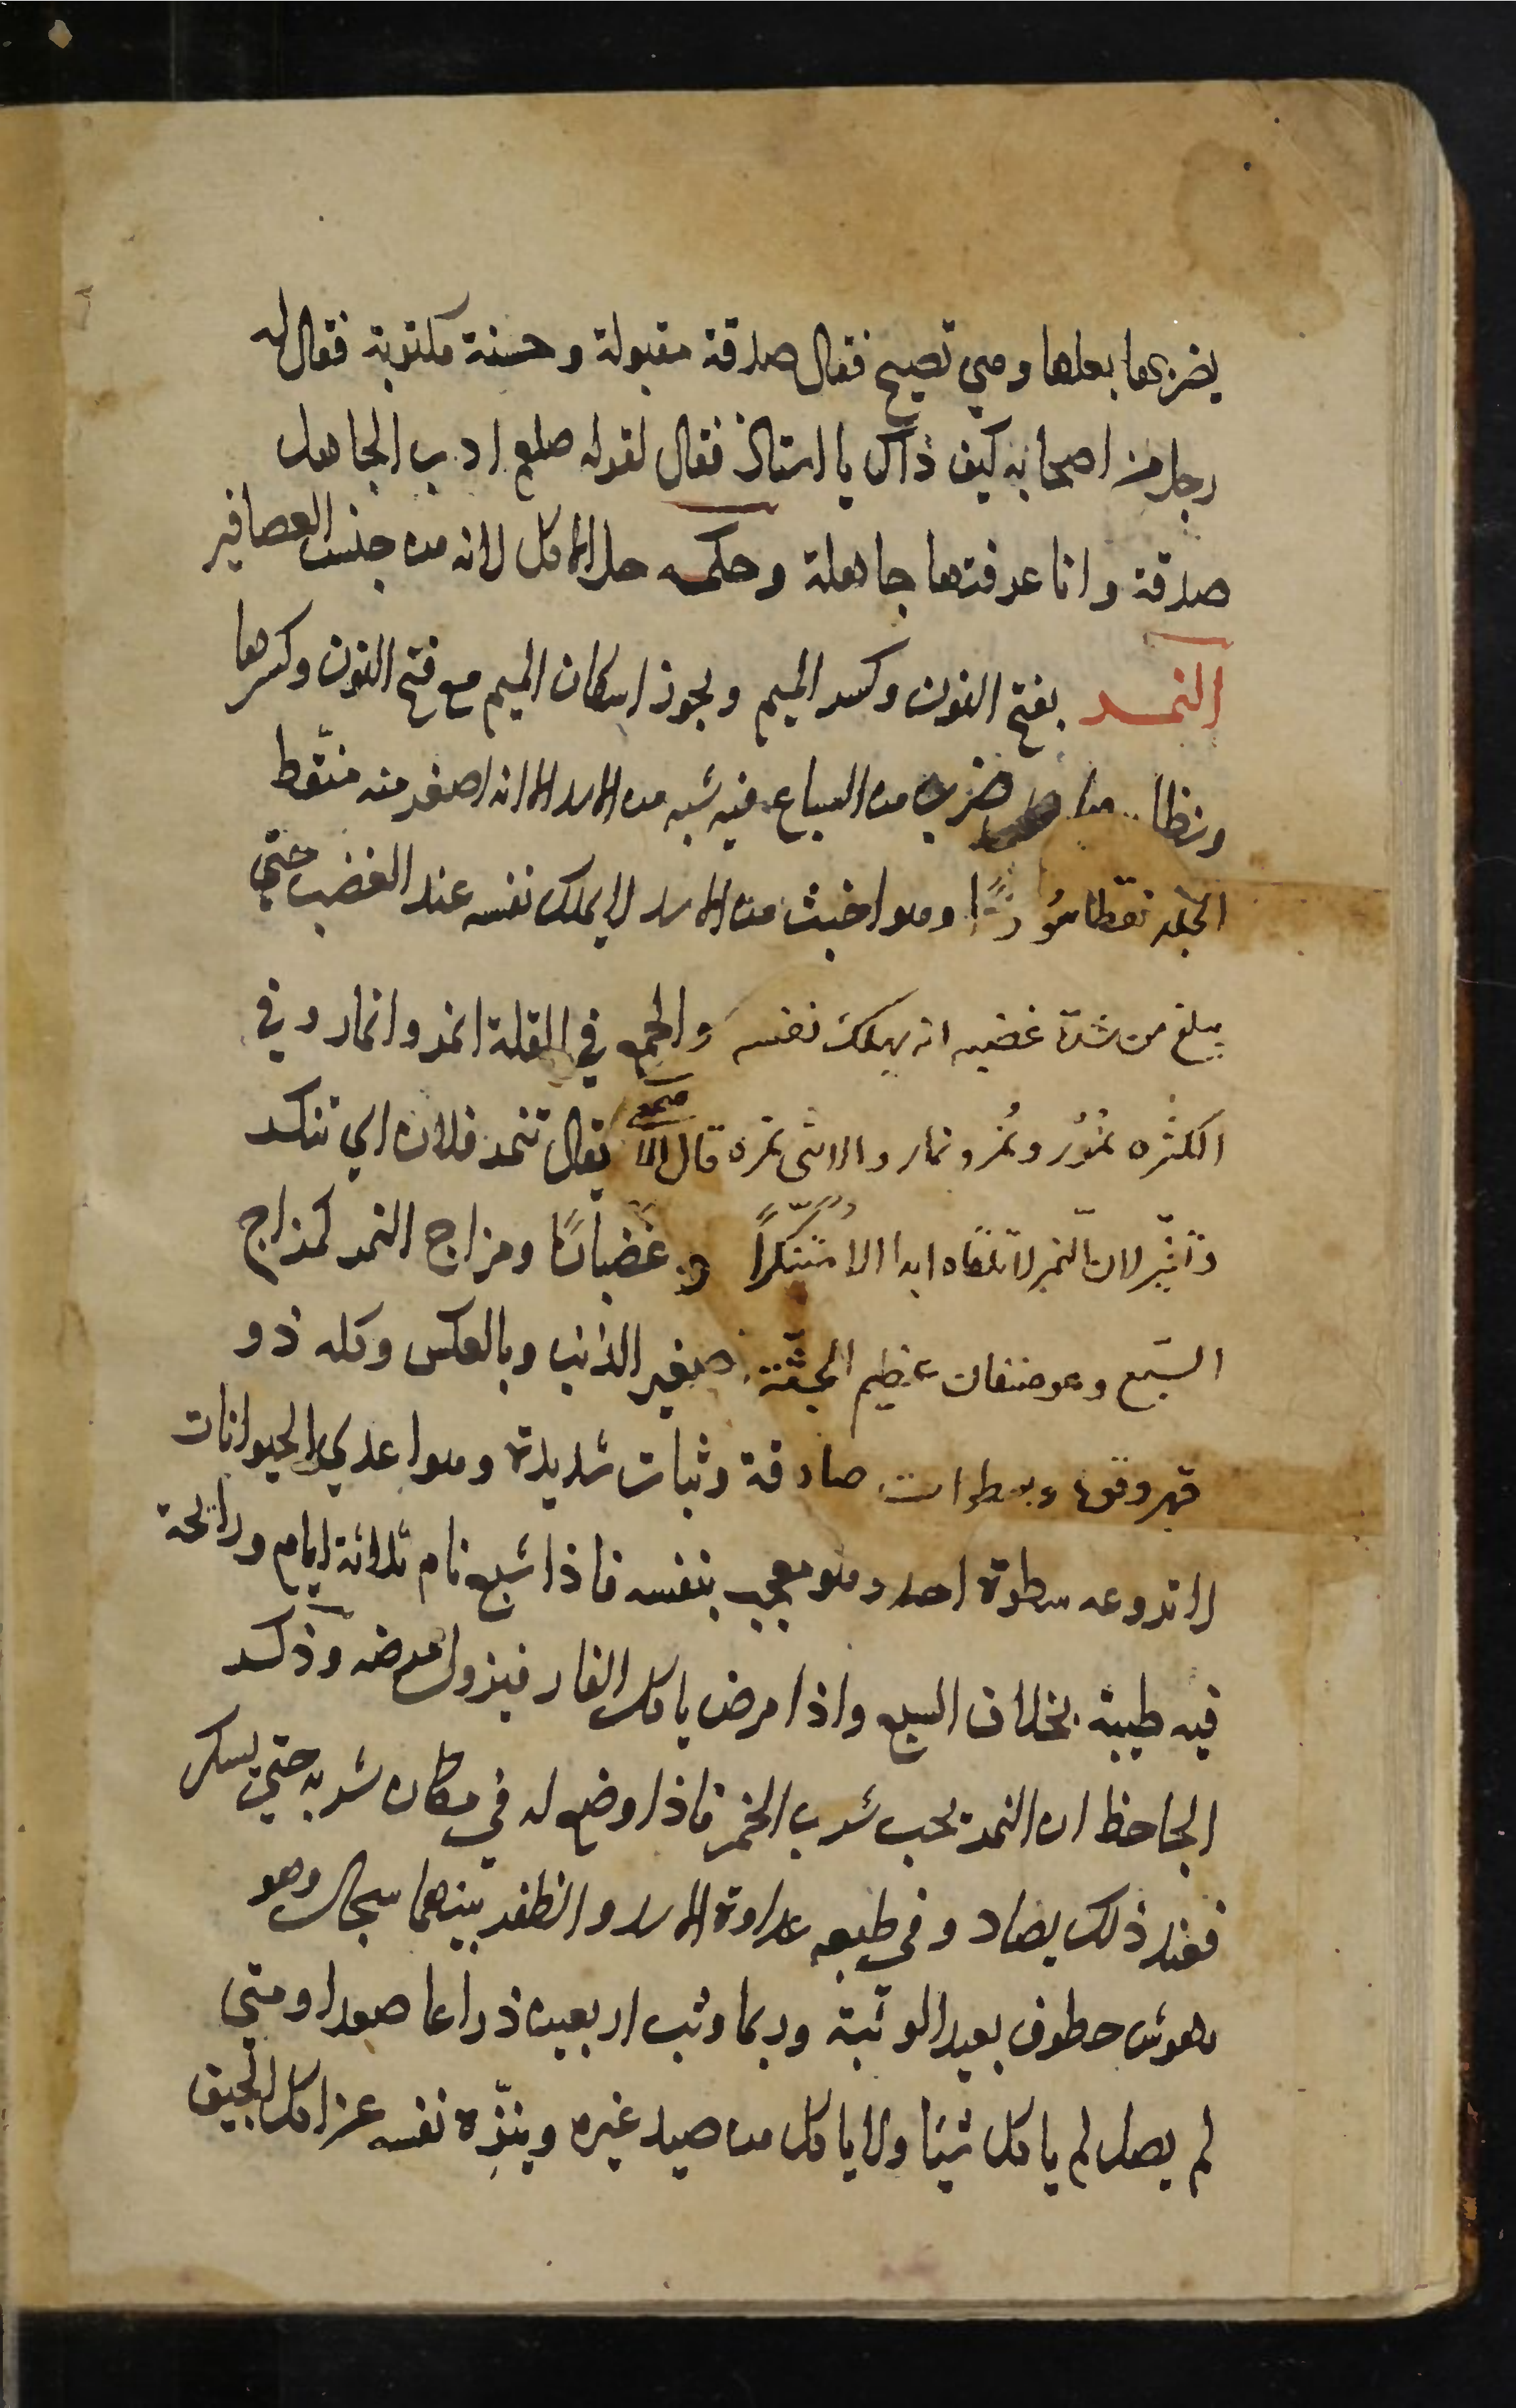 يضربها بعلها وهي تصيح فقال صدقة مقبولة وحسنة مكتوبة فقال له
رجل من اصحابه كيف ذاك يا استاذ فقال لقوله صلعم ادب الجاهل
صدقة وانا عرفتها جاهلة وحكمه حل الاكل لانه من جنس العصافير
النمر بفتح النون وكسر الميم ويجوز اسكان الميم مع فتح النون وكسرها
ضرب من السباع فيه شبه من الاسد الا انه اصغر منه منقط
الجلد نقطا سودًا وهو اخبث من الاسد لا يملك نفسه عند الغضب حتي
يبلغ من شدة غضبه انه يهلك نفسه والجمع في القلة انمر وانمار وفي
الكثره نمُور ونُمر ونمار والانثى نمره قال يقال تنمر فلان اي تنكر
لان النمر لا تلقاه ابدا الا متنكرًا وغضبانًا ومزاج النمر كمزاج
السبع وهو صنفان عظيم الجثّة صغير الذنب وبالعكس وكله ذو
قهر وقوة وسطوات صادقة وثبات شديدة وهو اعدي الحيوانات
لا تروعه سطوة احد وهو معجب بنفسه فاذا شبع نام ثلاثة ايام ورائحة
فيه طيبة بخلاف السبع واذا مرض ياكل الفار فيزول مرضه وذكر
الجاحظ ان النمر يحب شرب الخمر فاذا وضع له في مكان شربه حتي يسكر
فعند ذلك يصاد وفي طبعه عداوة الاسد والظفر بينهما سجال وهو
نهوش خطوف بعيد الوثبة وربما وثب اربعين ذراعا صعودا ومتي
لم يصل لم ياكل شيئا ولا ياكل من صيد غيره وينزّه نفسه عن اكل الجيف